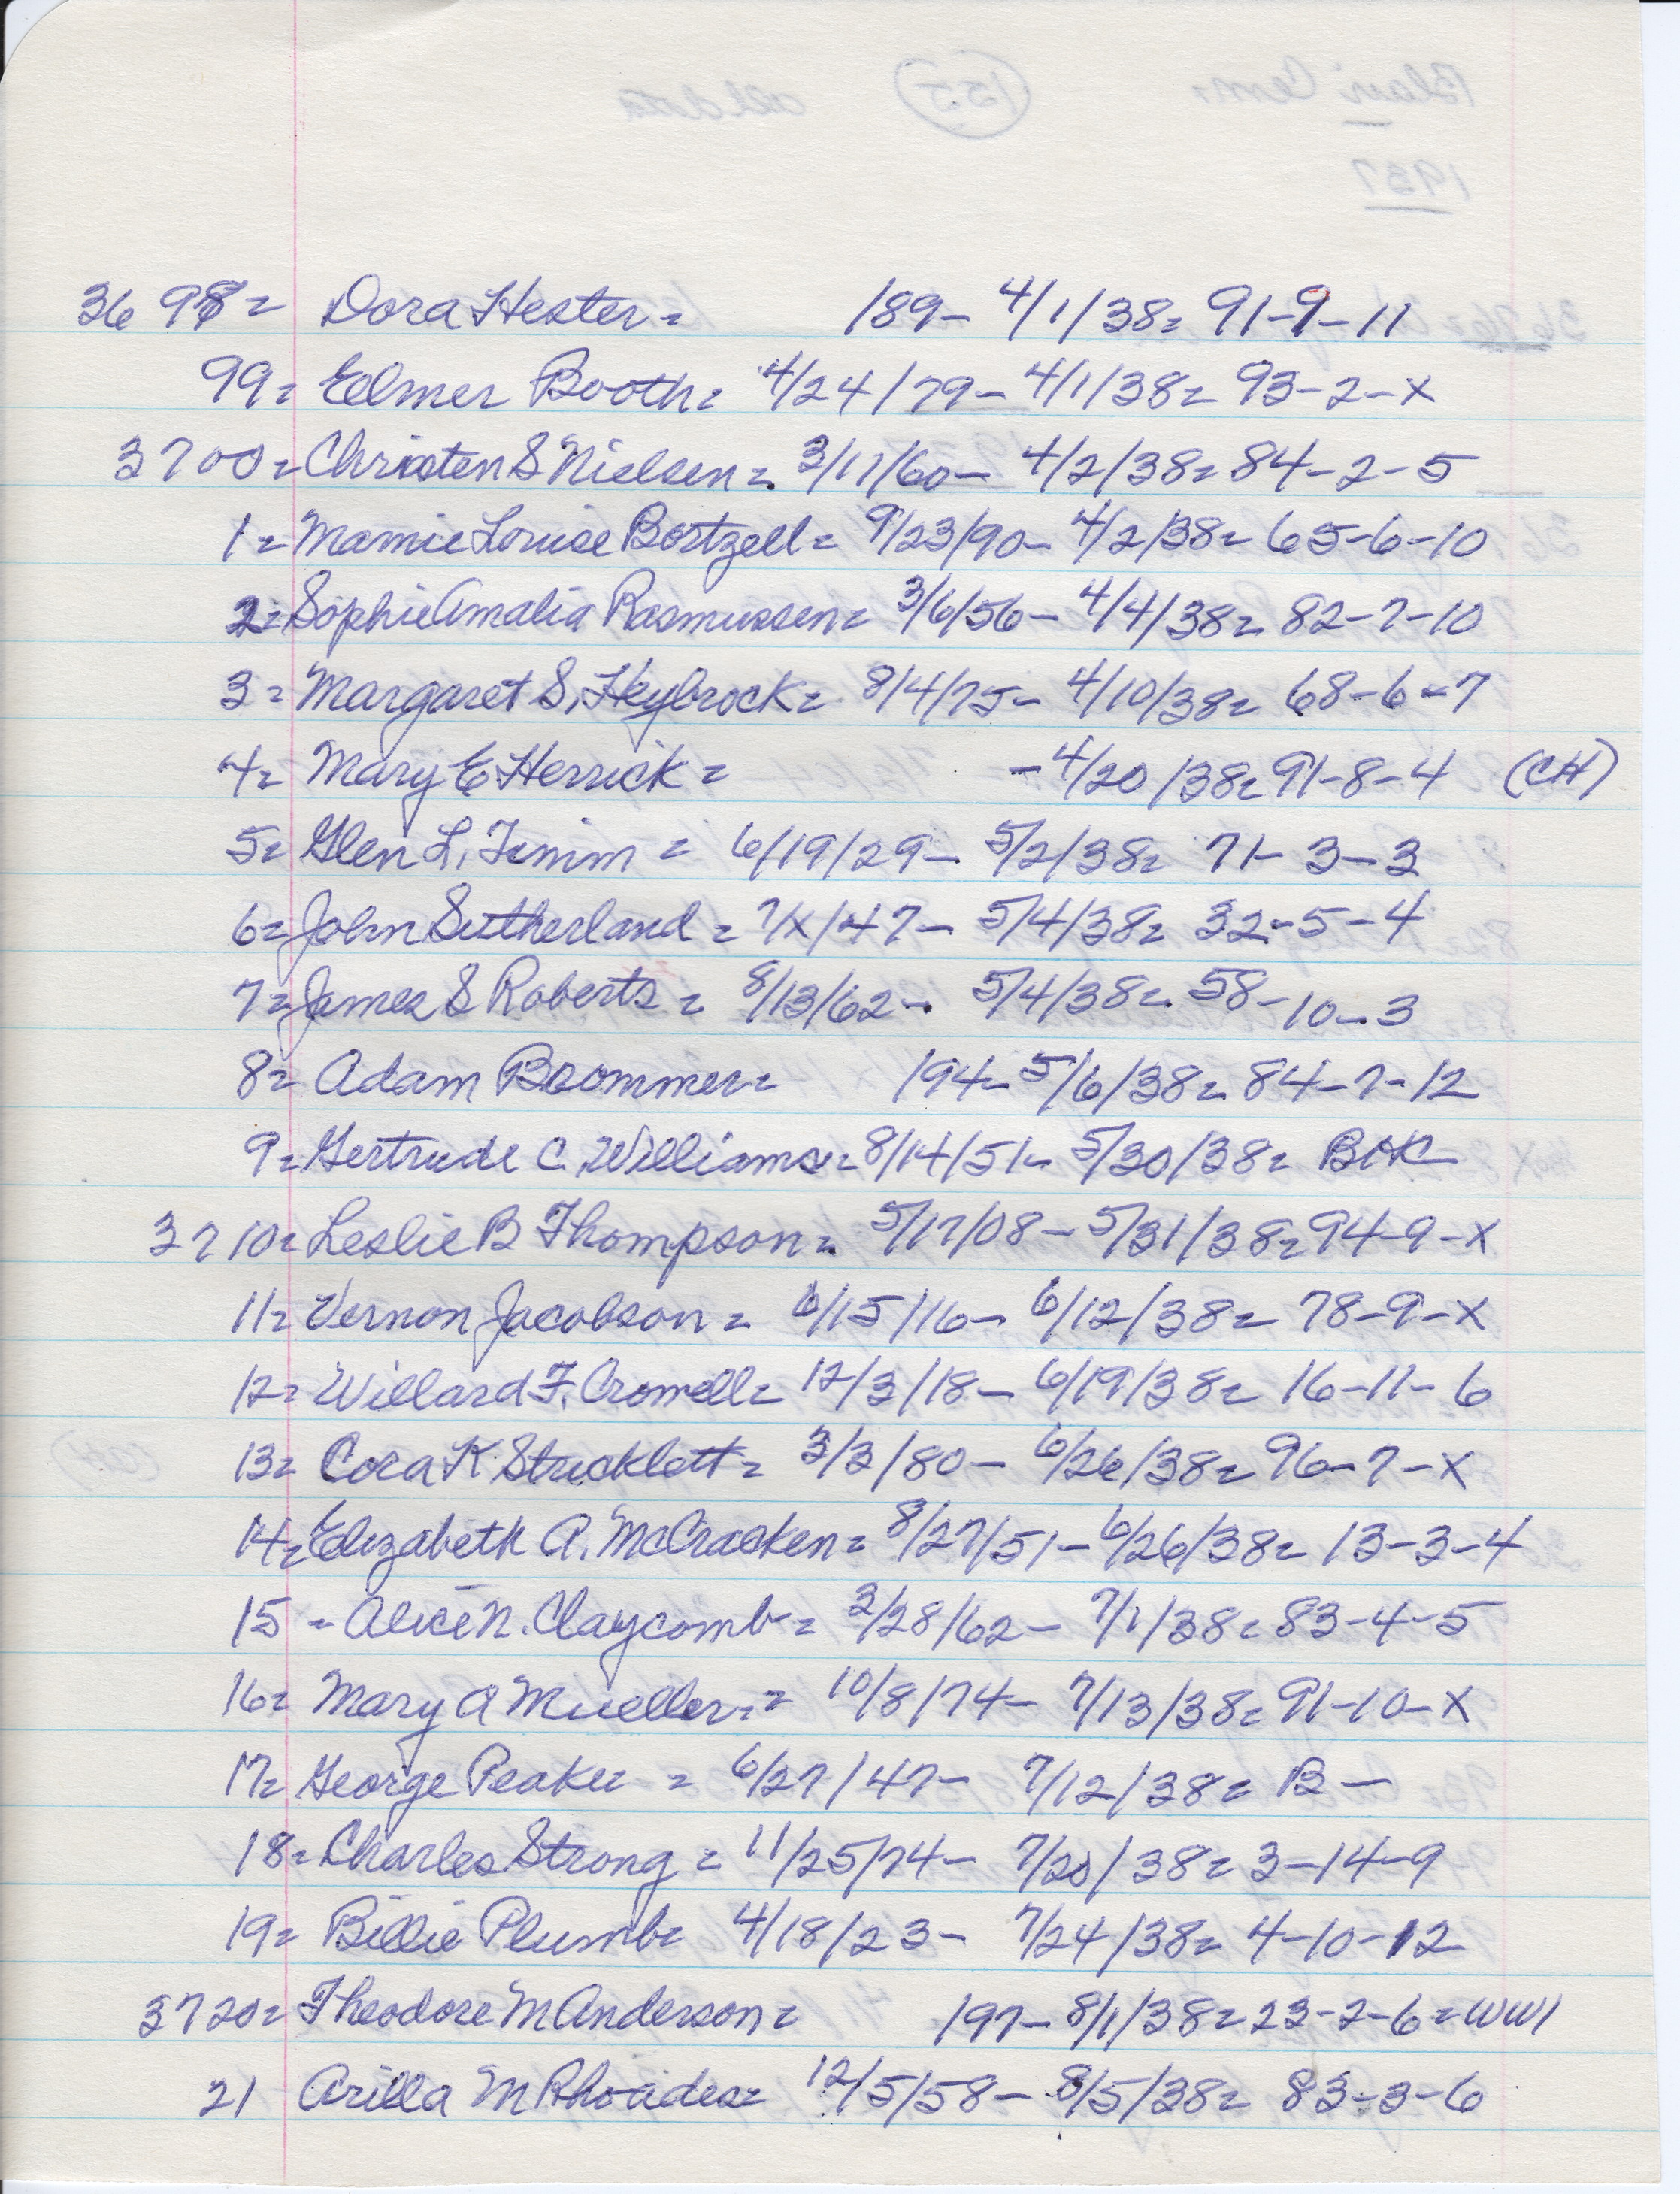 3698= Dora Hester= 189- 4/1/38= 91-9-11
99= Eelmer Booth= 4/24/79- 4/1/38= 93-2-X
3700= Christen S Nielsen= 3/17/60- 4/2/38= 84-2-5
1= Mamie Louise Bortzell= 9/23/90- 4/2/38= 65-6-10
2= Sophie Amalia Rasmussen= 3/6/56- 4/4/38= 82-7-10
3= Margaret S. Heybrock= 8/4/75- 4/10/38= 68-6-7
4= Mary E Herrick= -4/20/38= 91-8-4 (CH)
5= Glen L. Timm = 6/19/29- 5/2/38= 71-3-3
6= John Sutherland = 7/X/47- 5/4/38= 32-5-4
7= James S Roberts = 8/13/62- 5/4/38= 58-10-3
8= Adam Brommer= 194- 5/6/38= 84-7-12
9= Gertrude C. Williams= 8/14/51- 5/30/38= B
3710= Leslie B Thompson= 5/17/08- 5/31/38= 94-9-X
11= Vernon Jacobson = 6/15/16- 6/12/38= 78-9-X
12= Willard F. Cromell= 12/3/18- 6/19/38= 16-11-6
13= Cora K Strucklett= 3/3/80- 6/26/38= 96-7-X
14= Elizabeth A. McCracken= 8/27/51- 6/26/38= 13-3-4
15 = Alice N. Claycomb= 2/28/62- 7/1/38= 83-4-5
16= Mary A Mueller= 10/8/74- 7/13/38= 91-10-X
17= George Peaker = 6/27/47- 7/12/38= B -
18= Charles Strong = 11/25/74- 7/20/38= 3-14-9
19= Billie Plumb= 4/18/23- 7/24/38= 4-10-12
3720= Theodore M Anderson= 197- 8/1/38= 23-2-6= WW1
21 Arilla M Rhoades= 12/5/58- 8/5/38= 83-3-6